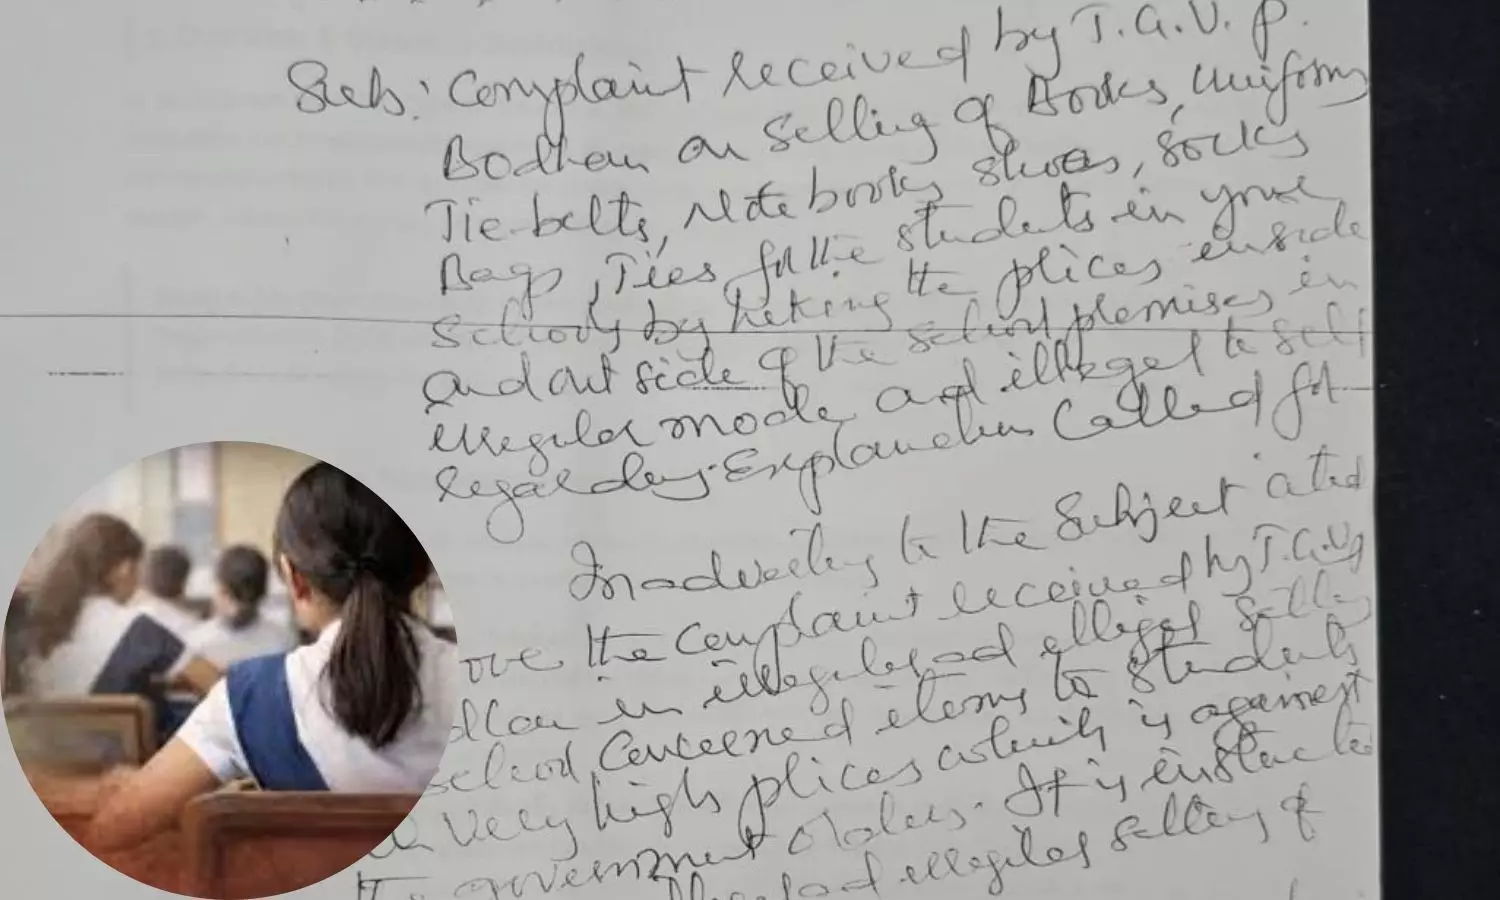 Sub: Complaint received by T.G.V.P.
Bodhan on selling of Books, Uniforms
Tie-belts, Note books, shoes, socks
Bags, Ties for the students in your
schools by heking the plices inside
and out side of the school plemises in
irregular mode and illegal to self
regarding. Explanation called for
Inadverting to the subject cited
the complaint received by T.G.V.P
in irregular and illegal selling
school concerned items to students
very high plices which is against
the government orders. It is instructed
illegal selling of